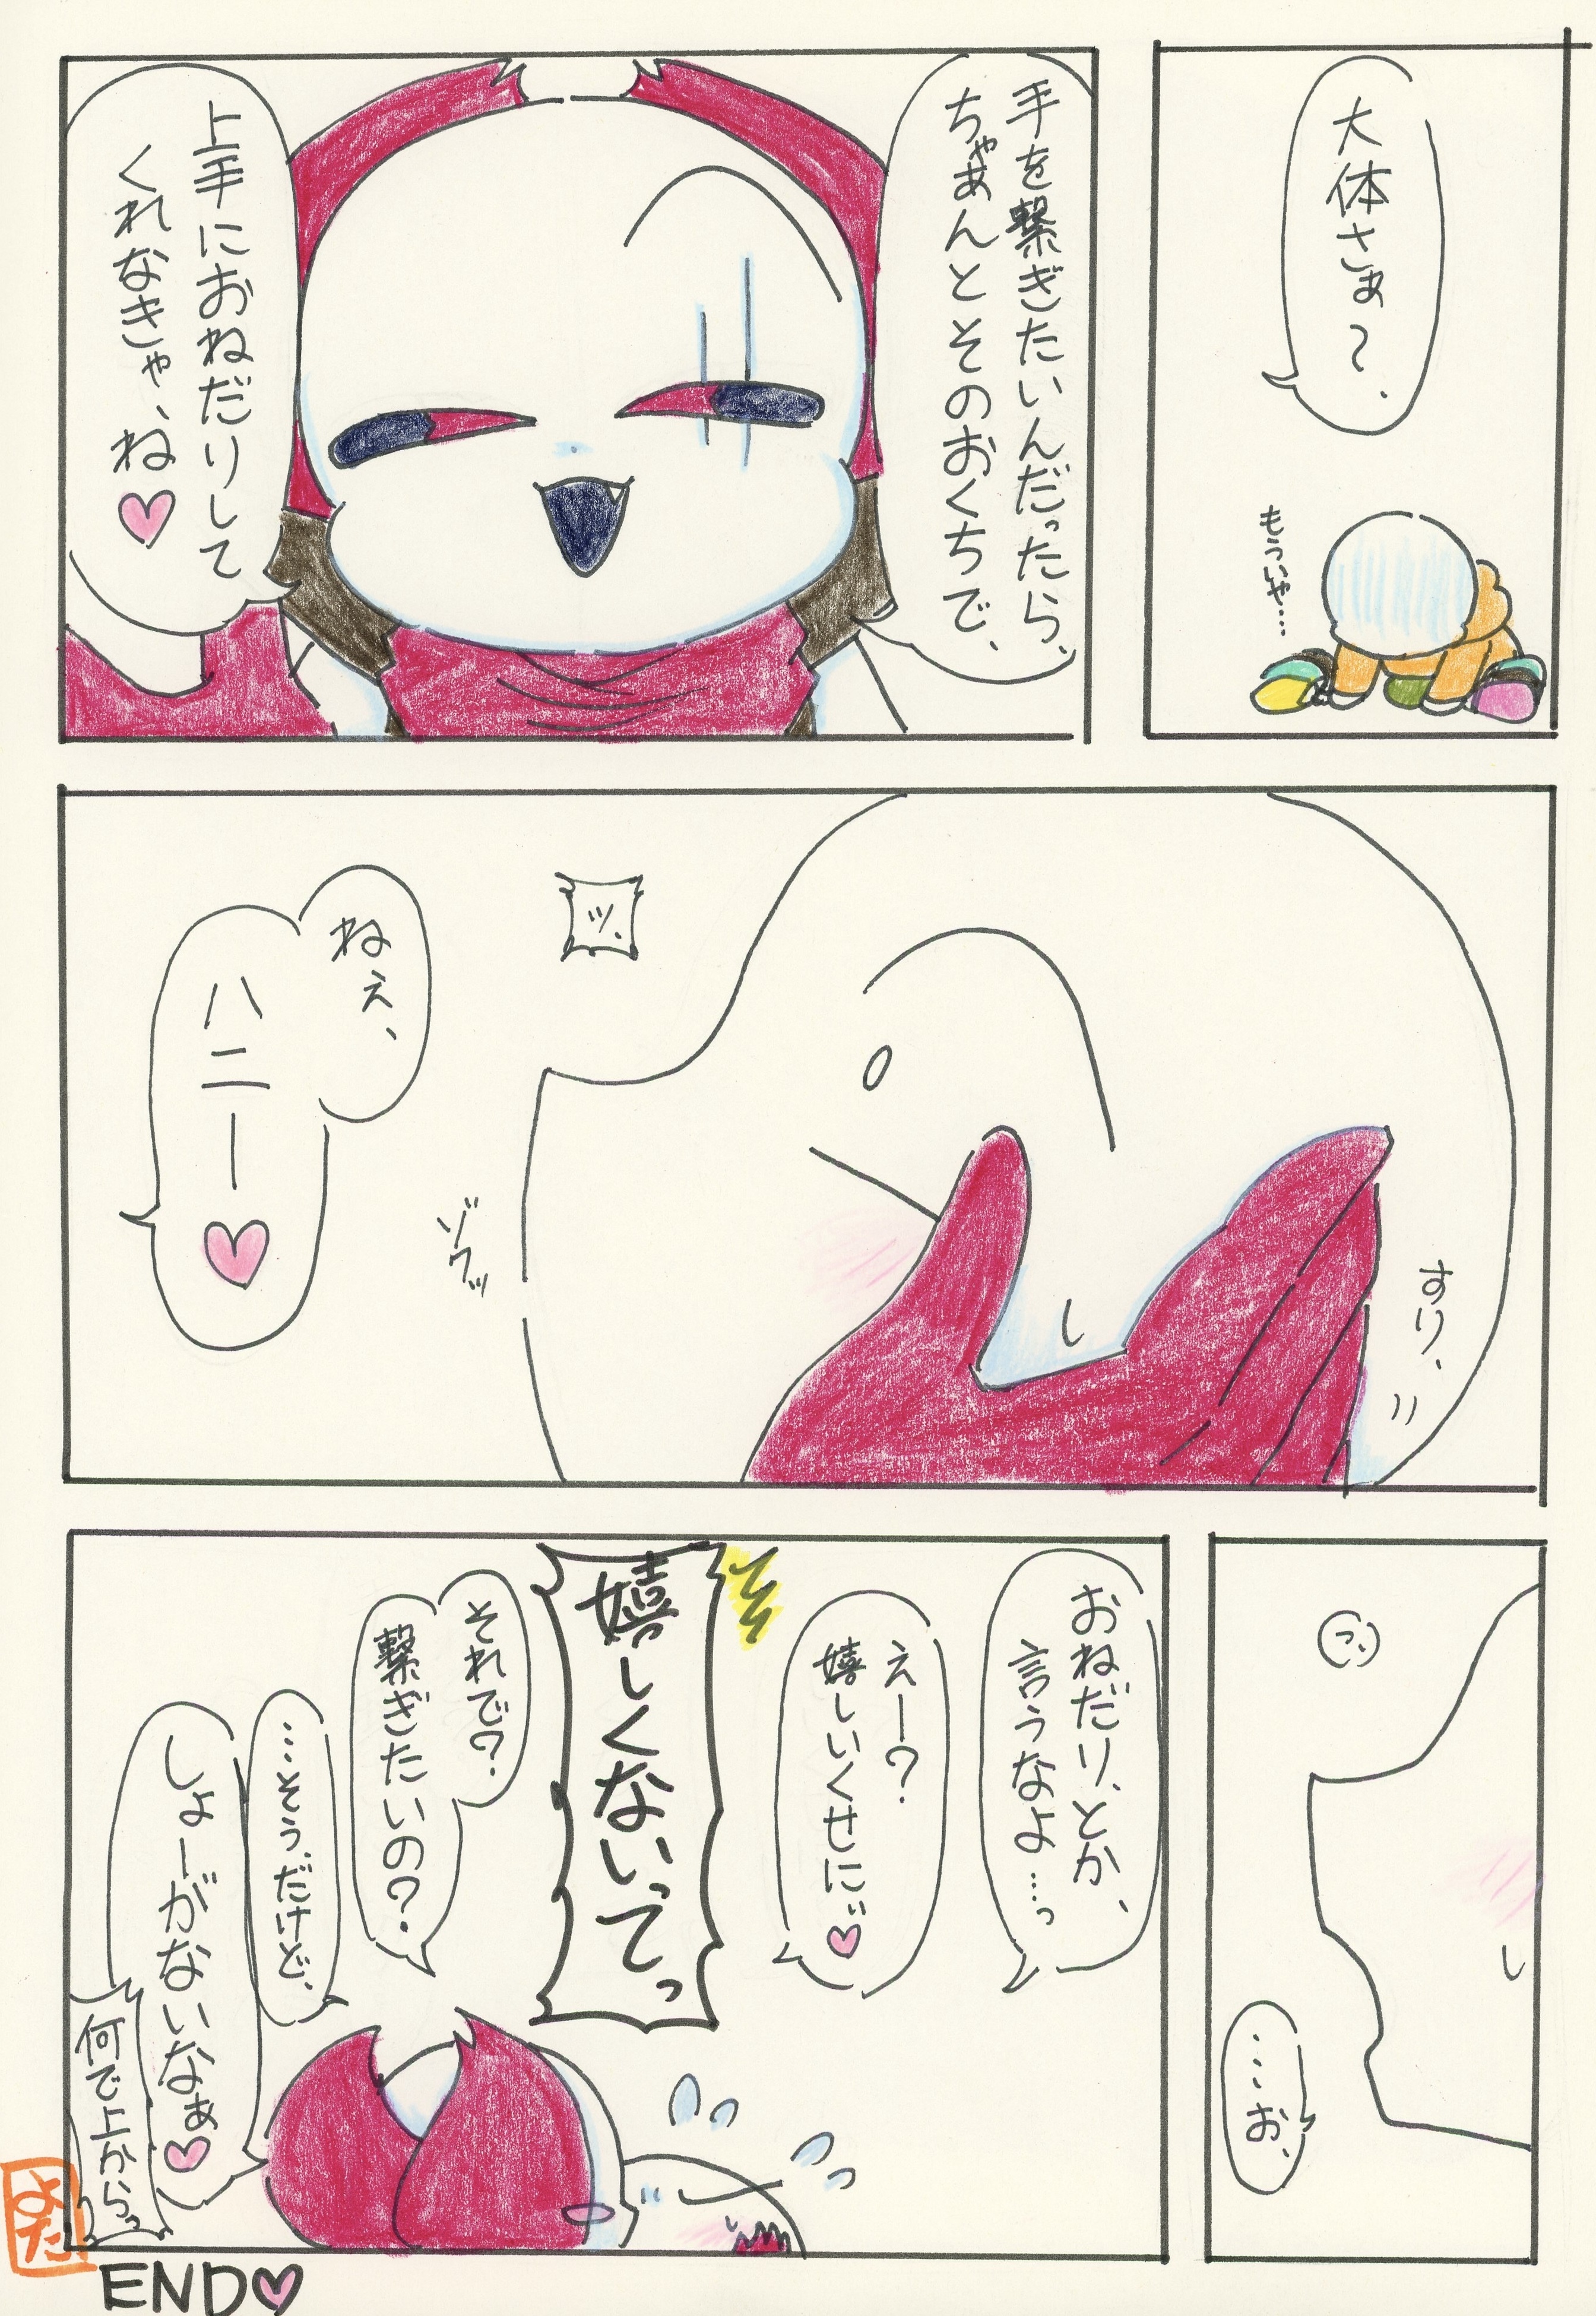 大体さぁ〜、
もういや…
手を繋ぎたいんだったら、
ちゃあんとそのおくちで、
上手におねだりして
くれなきゃ、ね♡
すり、
ッ、
ねぇ、
ハニー♡
ゾワッ
っ、
…お、
おねだり、とか、
言うなよ…っ
えー?
嬉しいくせに♡
嬉しくないってっ
それで?
繋ぎたいの?
…そう、だけど、
しょーがないなぁ♡
何で上からっ
よた
END♡